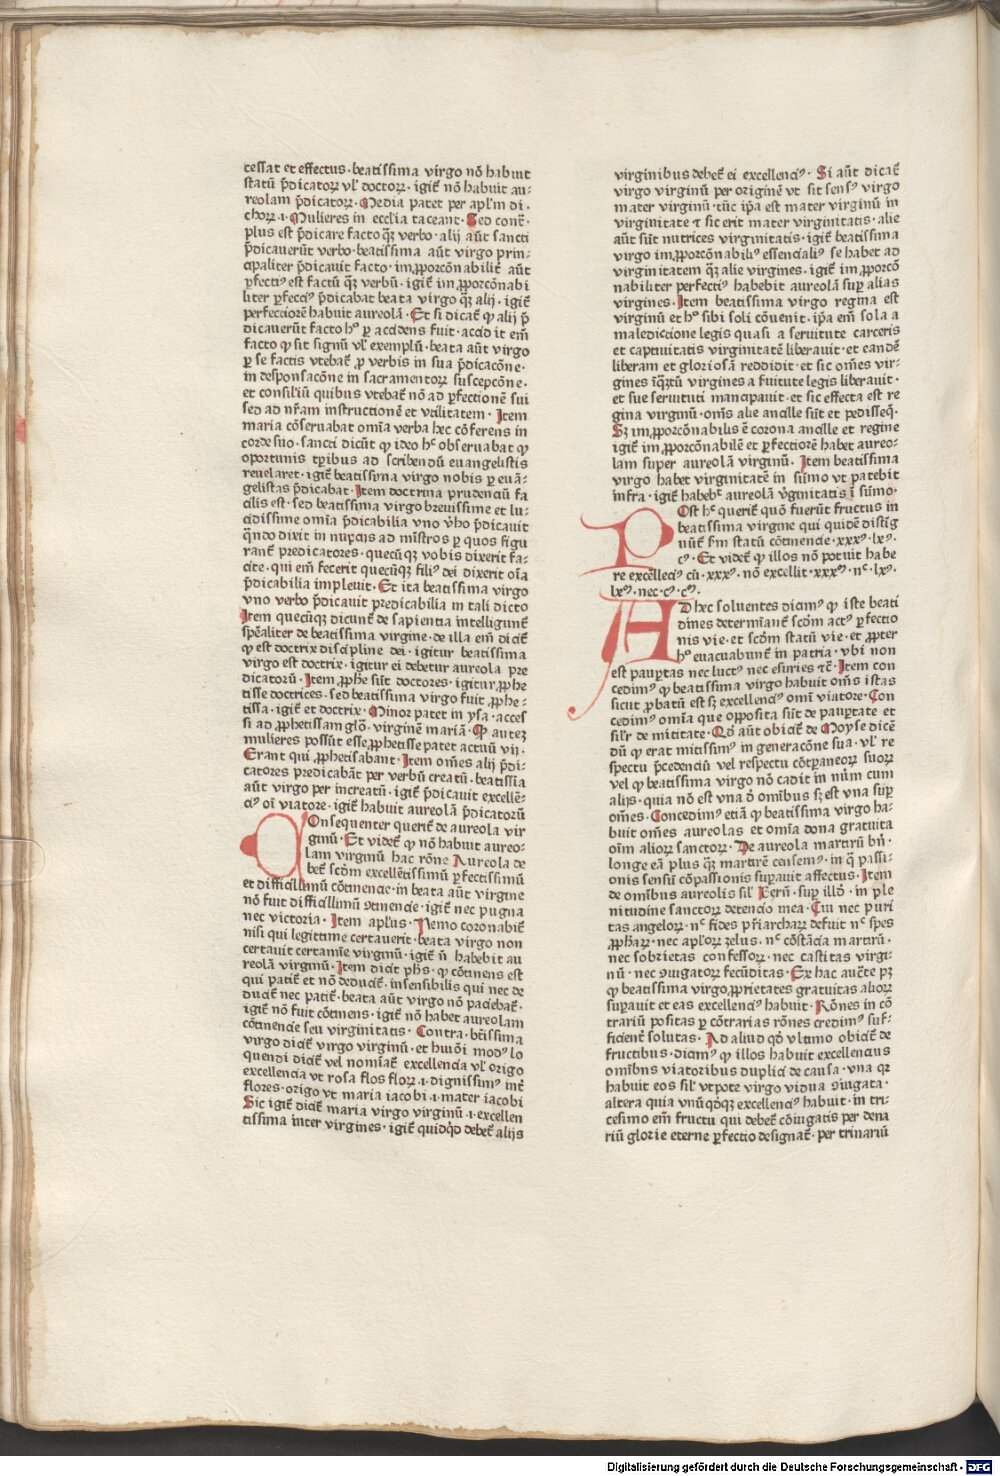 cessat et effectus · beatissima virgo nō habuit
statū p̄dicatoꝝ vl' doctoꝝ · igit̄ nō habuit au⸗
reolam p̄dicatoꝝ · Media patet per apl'm di ·
choꝝ · i · Mulieres in eccl'ia taceant · Sed cont̄ ·
plus est p̄dicare facto qꝫ verbo · alij aūt sancti
p̄dicauerūt verbo · beatissima aūt virgo prin⸗
cipaliter p̄dicauit facto · im ꝓporcōnabilit̄ aūt
ꝑfectiꝰ est factū qꝫ verbū · igit̄ im ꝓporcōnabi
liter ꝑfecciꝰ p̄dicabat beata virgo qꝫ alij · igit̄
perfectiorē habuit aureolā · Et si dicat̄ ꝙ alij p̄
dicauerūt facto hº ꝑ accidens fuit · accidit em̄
facto ꝙ sit signū vl' exemplū · beata aūt virgo
ꝑ se factis vtebat̄ ꝓ verbis in sua p̄dicacōne ·
in desponsacōne in sacramentoꝝ suscepcōne ·
et consiliū quibus vtebat̄ nō ad ꝑfectionē sui
sed ad nr̄am instructionē et vtilitatem · Item
maria cōseruabat om̄ia verba hec cōferens in
corde suo · sancti dicūt ꝙ ideo hᶜ obseruabat ꝙ
oportunis tꝑibus ad scribendū euangelistis
reuelaret · igit̄ beatissima virgo nobis ꝑ euā⸗
gelistas p̄dicabat · Item doctrina prudenciū fa
cilis est · sed beatissima virgo breuissime et lu⸗
cidissime om̄ia p̄dicabilia vno v̄bo p̄dicauit
qn̄do dixit in nupcijs ad mīstros ꝑ quos figu
rant̄ predicatores · quecūqꝫ vobis dixerit fa⸗
cite · qui em̄ fecerit quecūqꝫ filiꝰ dei dixerit oīa
p̄dicabilia impleuit · Et ita beatissima virgo
vno verbo p̄dicauit predicabilia in tali dicto
Item quecūqꝫ dicunt̄ de sapientia intelligunt̄
spēaliter de beatissima virgine · de illa em̄ dicit̄
ꝙ est doctrix discipline dei · igitur beatissima
virgo est doctrix · igitur ei debetur aureola pre
dicatorū · Item ꝓphe sūt doctores · igitur ꝓphe
tisse doctrices · sed beatissima virgo fuit ꝓphe⸗
tissa · igit̄ et doctrix · Minor patet in ysa · acces
si ad ꝓphetissam glō · virginē mariā · Ꝙ autez
mulieres possūt esse ꝓphetisse patet actuū vij ·
Erant qui ꝓphetisabant · Item om̄es alij p̄di⸗
catores predicabāt per verbū creatū · beatissīa
aūt virgo per increatū · igit̄ p̄dicauit excellē⸗
ciꝰ oī viatore · igit̄ habuit aureolā p̄dicatorū
COnsequenter querit̄ de aureola vir
ginū · Et videt̄ ꝙ nō habuit aureo⸗
lam virginū hac rōne Aureola de
bet̄ scd̄m excellētissimū ꝑfectissimū
et difficillimū cōtinencie · in beata aūt virgine
nō fuit difficillimū ꝯtinencie · igit̄ nec pugna
nec victoria · Item apl'us · Nemo coronabit̄
nisi qui legittime certauerit · beata virgo non
certauit certamīe virginū · igit̄ n̄ habebit au
reolā virginū · Item dicit ph̄s · ꝙ cōtinens est
qui patit̄ et nō deducit̄ · insensibilis qui nec de
ducit̄ nec patit̄ · beata aūt virgo nō paciebat̄ ·
igit̄ nō fuit cōtinens · igit̄ nō habet aureolam
cōtinencie seu virginitatis · Contra · bt̄issima
virgo dicit̄ virgo virginū · et huiōi modꝰ lo
quendi dicit̄ vel nomīat̄ excellencia vl' origo
excellencia vt rosa flos floꝝ · i · dignissimꝰ int̄
flores · origo vt maria iacobi · i · mater iacobi
Sic igit̄ dicit̄ maria virgo virginū · i · excellen
tissima inter virgines · igit̄ quidqd̄ debet̄ alijs
virginibus debet̄ ei excellenciꝰ · Si aūt dicat̄
virgo virginū per originē vt sit sensꝰ virgo
mater virginū · tūc ip̄a est mater virginū in
virginitate ⁊ sic erit mater virginitatis · alie
aūt sūt nutrices virginitatis · igit̄ beatissima
virgo im ꝓporcōnabiliꝰ essencialiꝰ se habet ad
virginitatem qꝫ alie virgines · igit̄ im ꝓporcō
nabiliter perfectiꝰ habebit aureolā suꝑ alias
virgines · Item beatissima virgo regina est
virginū et hº sibi soli cōuenit · ip̄a em̄ sola a
malediccione legis quasi a seruitute carceris
et captiuitatis virginitatē liberauit · et eandē
liberam et gloriosā reddidit · et sic om̄es vir⸗
gines īqꝫtū virgines a ſuitute legis liberauit ·
et sue seruituti mancipauit · et sic effecta est re
gina virginū · om̄s alie ancille sūt et pedisseq̄ ·
Sꝫ im ꝓporcōnabilis ē corona ancille et regine
igit̄ im ꝓporcōnabilē et ꝑfectiorē habet aureo⸗
lam super aureolā virginū · Item beatissima
virgo habet virginitatē in sūmo vt patebit
infra · igit̄ habebᵗ aureolā v̄ginitatis ī sūmo ·
POst hᶜ querit̄ quō fuerūt fructus in
beatissima virgine qui quidē distīg
nūt̄ ẜm statū cōtinencie · xxxꝰ · lxꝰ ·
cꝰ · Et videt̄ ꝙ illos nō potuit habe
re excellēciꝰ cū · xxxꝰ · nō excellit · xxxᵐ · nᶜ · lxꝰ ·
lxᵐ · nec · cꝰ · cᵐ ·
AD hec soluentes diamꝰ ꝙ iste beati
dines determīant̄ scd̄m actꝰ ꝑfectio
nis vie · et scd̄m statū vie · et ꝓpter
hº euacuabunt̄ in patria · vbi non
est pauꝑtas nec luctꝰ nec esuries ⁊c̄ · Item con
cedimꝰ ꝙ beatissima virgo habuit om̄s istas
sicut ꝓbatū est sꝫ excellenciꝰ omī viatore · Con
cedimꝰ om̄ia que opposita sūt de pauꝑtate et
sil'r de mititate · Qd̄ aūt obicit̄ de Moyse dicē
dū ꝙ erat mitissimꝰ in generacōne sua · vl' re
spectu p̄cedenciū vel respectu cōtꝑaneoꝝ suoꝝ
vel ꝙ beatissima virgo nō cadit in nūm cum
alijs · quia nō est vna d̄ om̄ibus sꝫ est vna suꝑ
om̄es · Concedimꝰ etiā ꝙ beatissima virgo ha⸗
buit om̄es aureolas et om̄ia dona gratuita
oīm alioꝝ sanctoꝝ · De aureola martirū bn̄ ·
longe eā plus qꝫ martirē censemꝰ · in q̄ passi⸗
onis sensū cōpassionis suꝑauit affectus · Item
de om̄ibus aureolis sil' Ierū · suꝑ illd̄ · in ple
nitudine sanctoꝝ detencio mea · Cui nec puri
tas angeloꝝ · nᶜ fides p̄riarchaꝝ defuit nᶜ spes
ꝓphaꝝ · nec apl'oꝝ zelus · nᶜ cōstācia martirū ·
nec sobrietas confessoꝝ · nec castitas virgi⸗
nū · nec ꝯiugatoꝝ fecūditas · Ex hac auctē pꝫ
ꝙ beatissima virgo ꝓprietates gratuitas alioꝝ
suꝑauit et eas excellenciꝰ habuit · Rōnes in cō
trariū positas ꝑ cōtrarias rōnes credimꝰ suf⸗
ficient̄ solutas · Ad aliud qd̄ vltimo obicit̄ de
fructibus · diamꝰ ꝙ illos habuit excellencius
omībus viatoribus duplici de causa · vna qꝛ
habuit eos sil' vtpote virgo vidua ꝯiugata ·
altera quia vnūqd̄qꝫ excellenciꝰ habuit · in tri⸗
cesimo em̄ fructu qui debet̄ cōiugatis per dena
riū glorie eterne ꝑfectio designat̄ · per trinariū
Digitalisierung gefördert durch die Deutsche Forschungsgemeinschaft - DFG